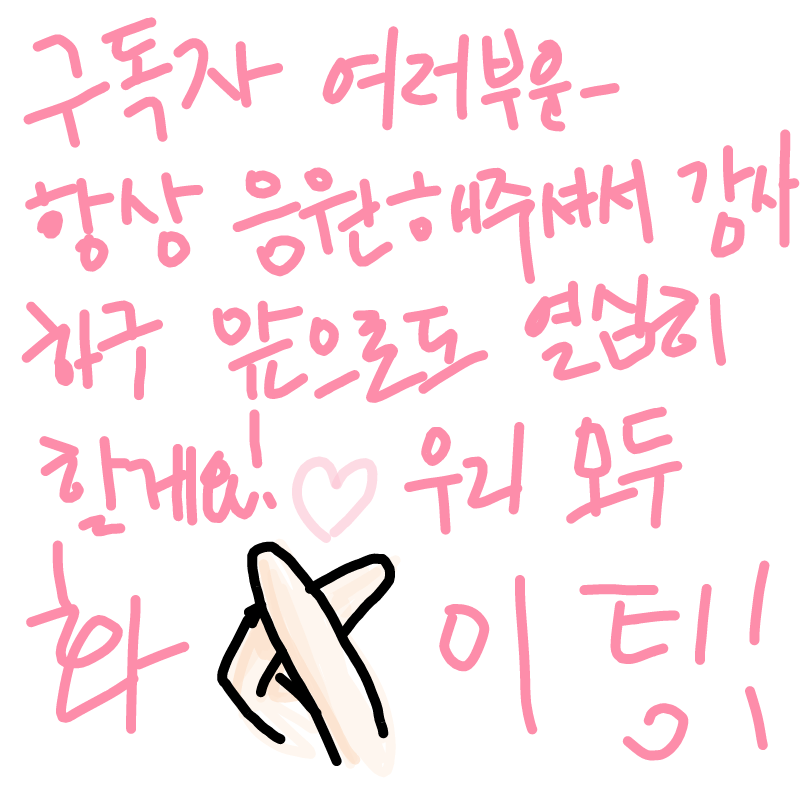 구독자 여러부운-
항상 응원해주셔서 감사
하구 앞으로도 열심히
할게요! ♡ 우리 모두
화 이팅!